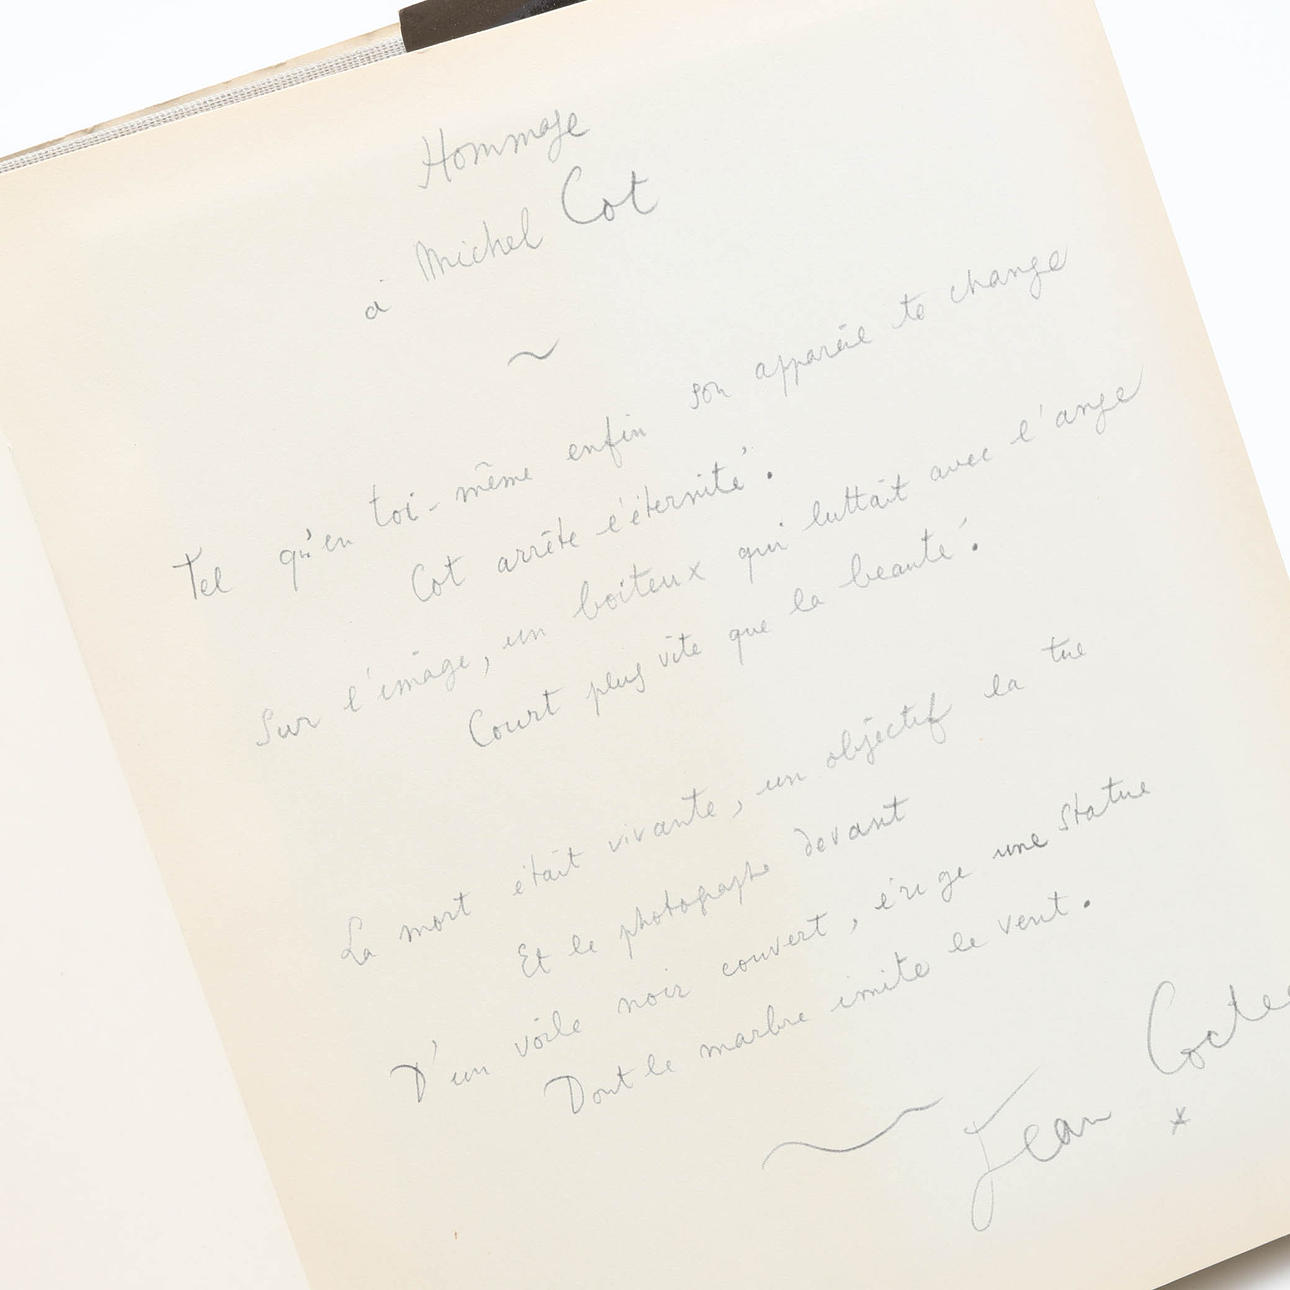 Hommage
à Michel Cot
Tel qu'en toi-même enfin son appareil te change
Cot arrête l'éternité.
Sur l'image, un boiteux qui luttait avec l'ange
Court plus vite que la beauté.
La mort était vivante, un objectif la tue
Et le photographe devant
D'un voile noir couvert, érige une statue
Dont le marbre imite le vent.
Jean Cocte